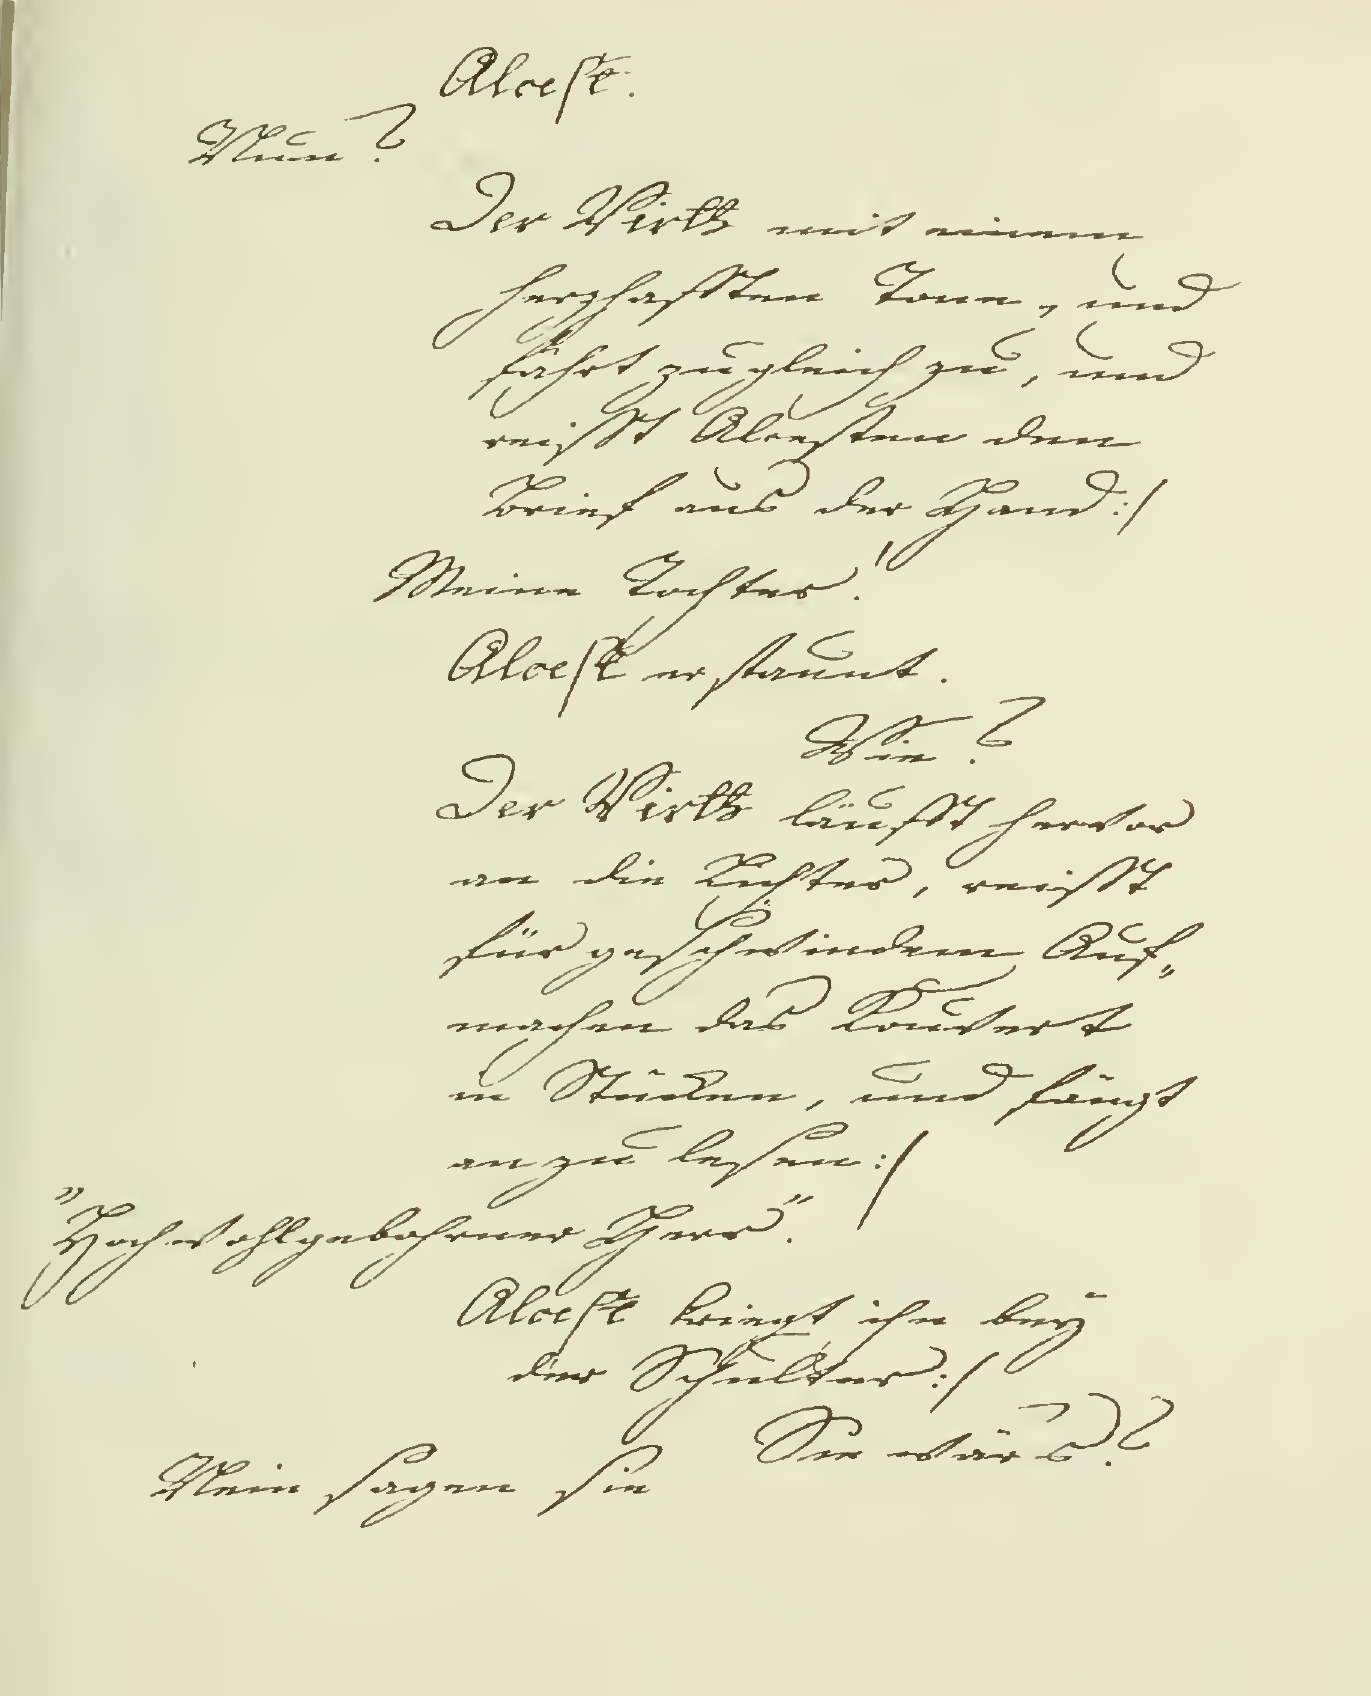 Alcest.
Nun?
Der Wirth mit einem
herzhafften Tone, und
fährt zugleich zu, und
reisst Alcesten den
Brief aus der Hand:/
Meine Tochter!
Alcest erstaunt.
Wie?
Der Wirth läufft hervor
an die Lichter, reisst
für geschwindem Auf„
machen das Kouvert
in Stücken, und fängt
an zu lesen:/
„Hochwohlgebohrner Herr“.
Alcest kriegt ihn bey
der Schulter:/
Sie wär's?
Nein sagen sie